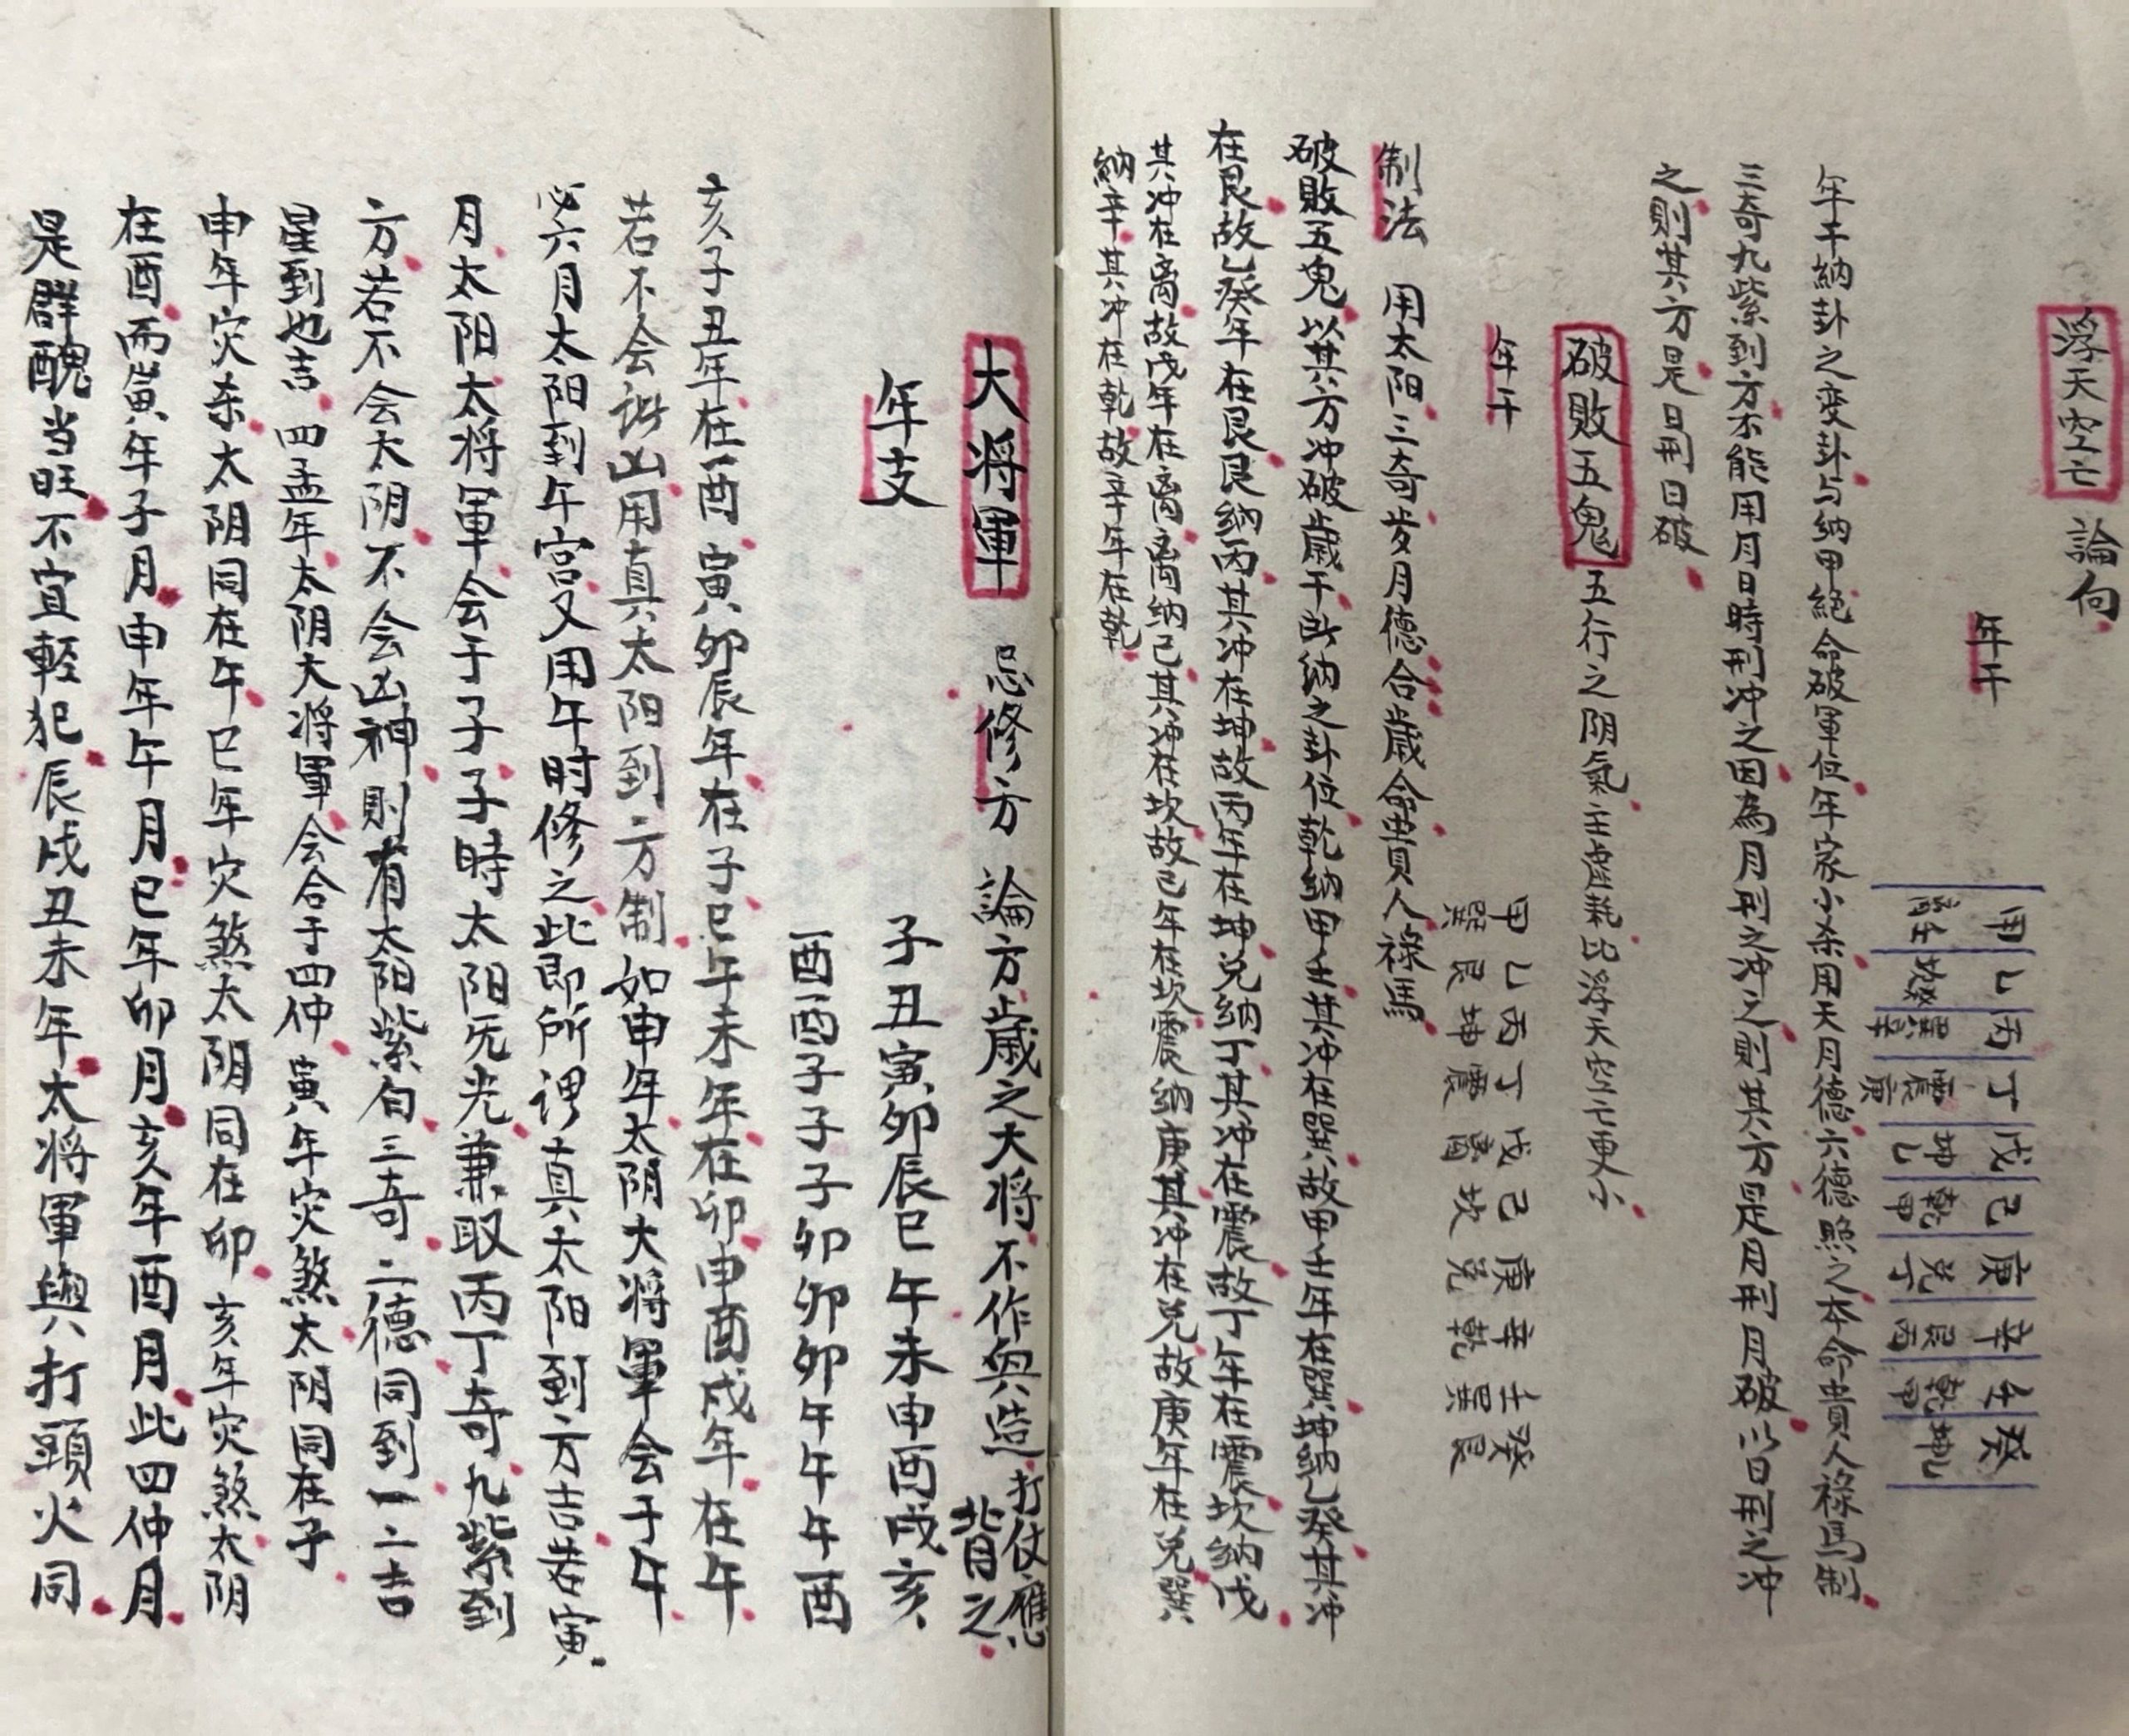 浮天空亡 論向
年干
甲 乙 丙 丁 戊 己 庚 辛 壬 癸
離壬 坎癸 巽辛 震庚 坤乙 乾甲 兌丁 艮丙 乾甲 坤乙
年干納卦之变卦与納甲絕命破軍位年家小杀用天月德六德照之本命貴人祿馬制
三奇九紫到方不能用月日時刑冲之因為月刑之冲之則其方是月刑月破以日刑之冲
之則其方是日刑日破
破敗五鬼 五行之阴氣主虛耗比浮天空亡更小
年干
甲 乙 丙 丁 戊 己 庚 辛 壬 癸
巽 艮 坤 震 離 坎 兌 乾 巽 艮
制法 用太阳三奇岁月德合歲命貴人祿馬
破敗五鬼以其方冲破歲干所納之卦位乾納甲壬其冲在巽故甲壬年在巽坤納乙癸其冲
在艮故乙癸年在艮艮納丙其冲在坤故丙年在坤兌納丁其冲在震故丁年在震坎納戊
其冲在离故戊年在离离納己其冲在坎故己年在坎震納庚其冲在兌故庚年在兌巽
納辛其冲在乾故辛年在乾
大将軍 忌修方 論方歲之大将不作興造打仗應背之
年支
子丑寅卯辰巳午未申酉戌亥
酉酉子子子卯卯卯午午午酉
亥子丑年在酉寅卯辰年在子巳午未年在卯申酉戌年在午
若不会诸凶用真太阳到方制如申年太阴大将軍会于午
必六月太阳到午宫又用午时修之此即所谓真太阳到方吉若寅
月太阳太将軍会于子子子時太阳旡光兼取丙丁奇九紫到
方若不会太阴不会凶神則有太阳紫白三奇二德同到一二吉
星到也吉四孟年太阴大将軍会合于四仲寅年灾煞太阴同在子
申年灾杀太阴同在午巳年灾煞太阴同在卯亥年灾煞太阴
在酉而寅年子月申年午月巳年卯月亥年酉月此四仲月
是群醜当旺不宜輕犯辰戌丑未年太将軍與打頭火同